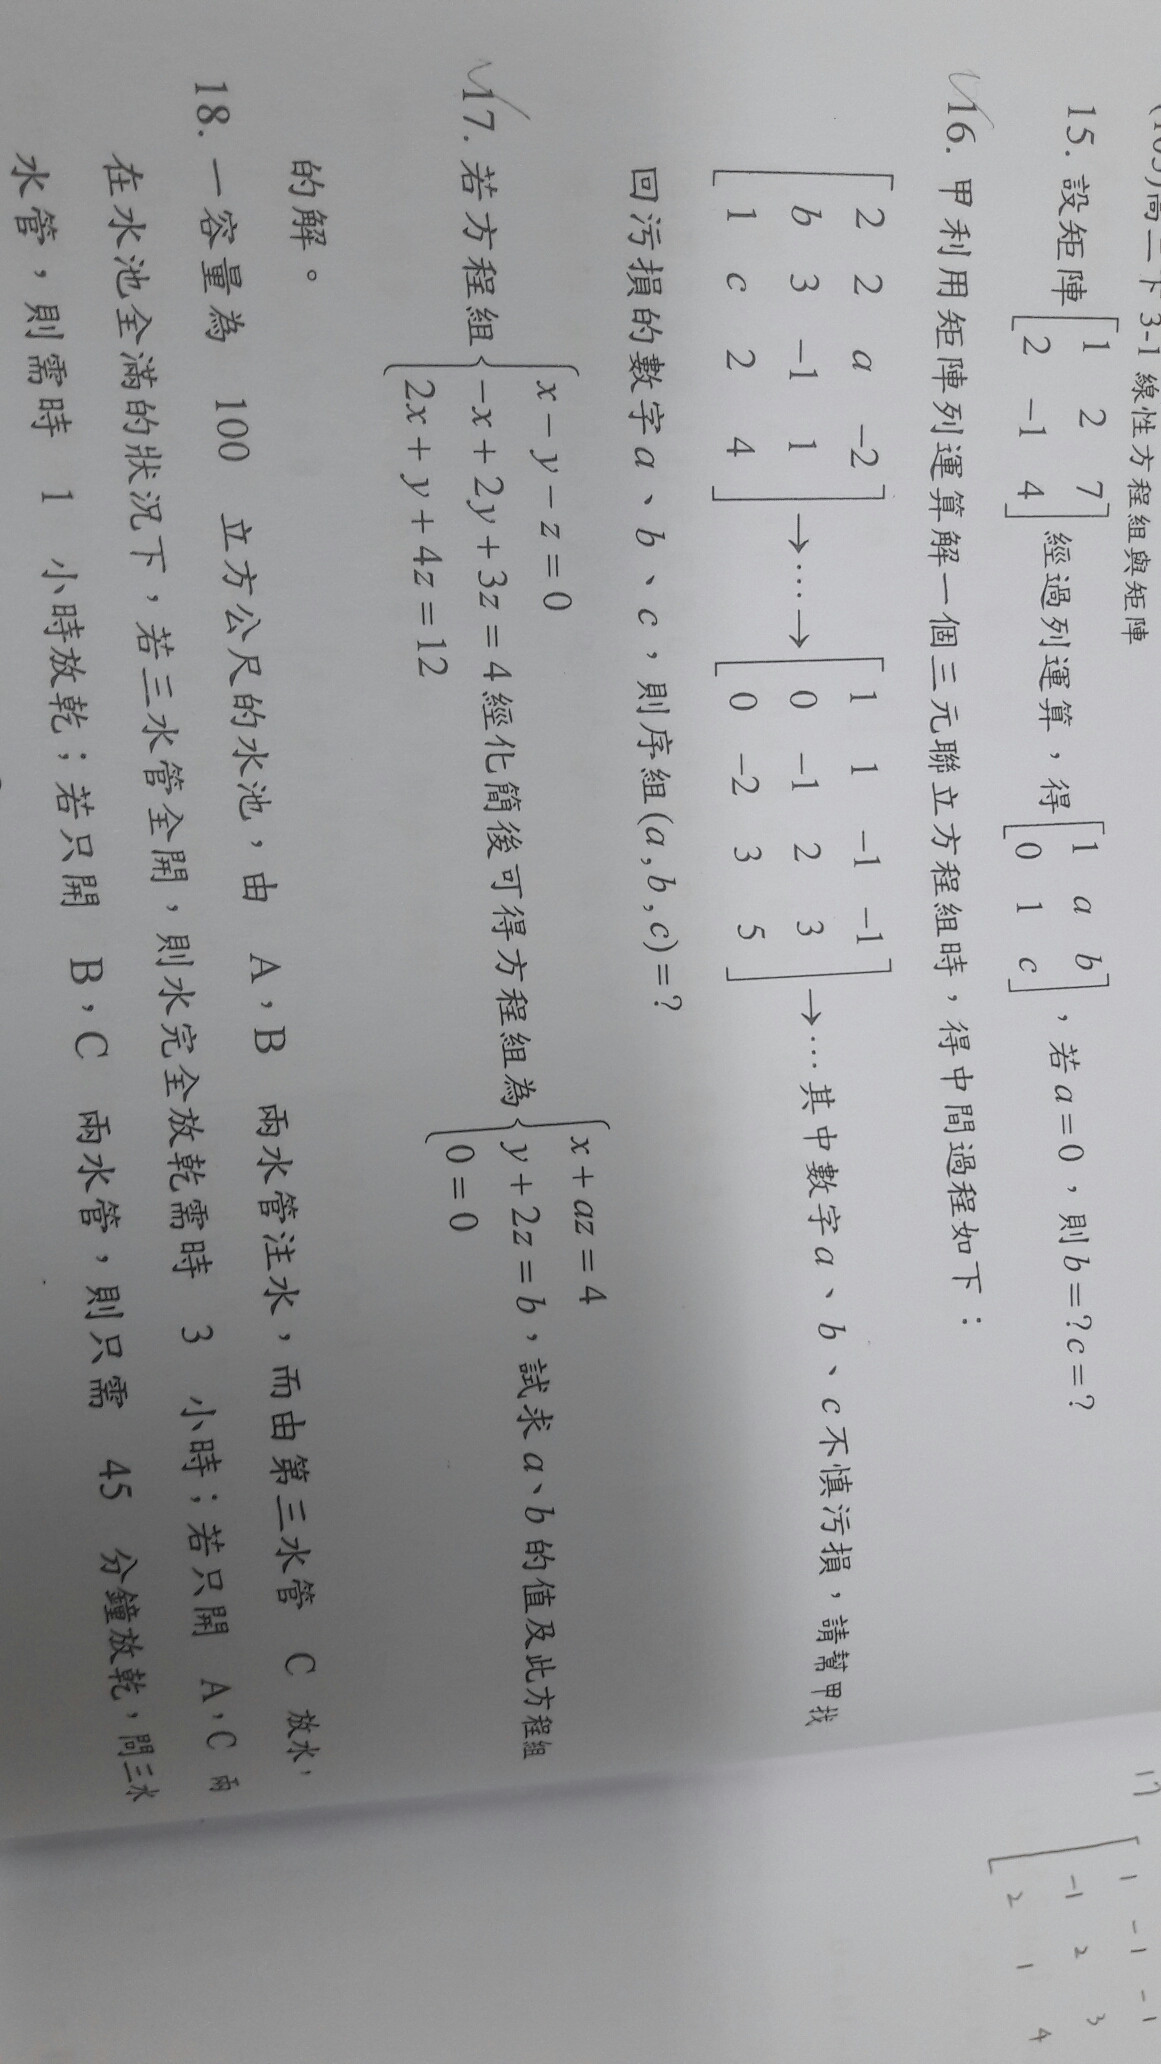 (103)高二下 3-1 線性方程組與矩陣
15. 設矩陣[1 2 7
2 -1 4]經過列運算，得[1 a b
0 1 c]，若a=0，則b=?c=?
16. 甲利用矩陣列運算解一個三元聯立方程組時，得中間過程如下：
[2 2 a -2
b 3 -1 1
1 c 2 4]→…→[1 1 -1 -1
0 -1 2 3
0 -2 3 5]→…其中數字a、b、c不慎污損，請幫甲找
回污損的數字a、b、c，則序組(a,b,c)=?
17. 若方程組{x-y-z=0
-x+2y+3z=4
2x+y+4z=12經化簡後可得方程組為{x+az=4
y+2z=b
0=0，試求a、b的值及此方程組
的解。
18. 一容量為 100 立方公尺的水池，由 A，B 兩水管注水，而由第三水管 C 放水，
在水池全滿的狀況下，若三水管全開，則水完全放乾需時 3 小時；若只開 A，C 兩
水管，則需時 1 小時放乾；若只開 B，C 兩水管，則只需 45 分鐘放乾，問三水
17
1 -1 -1
-1 2 3
2 1 4